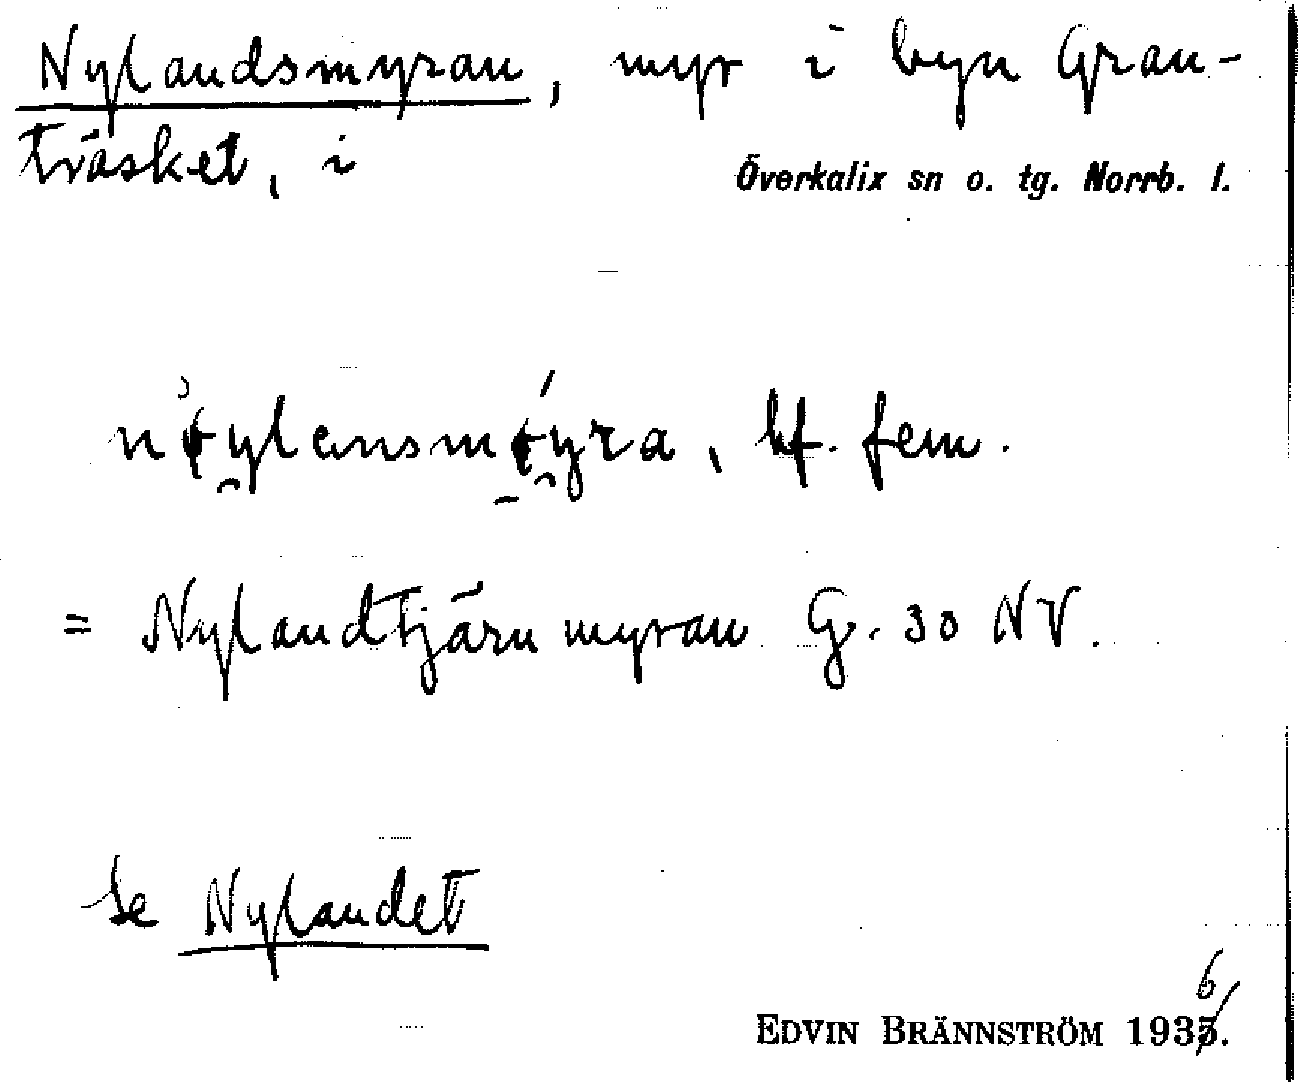 Nylandsmyran, myr i byn Gran-
träsket, i Överkalix sn o. tg. Norrb. l.
bf. fem.
= Nylandtjärnmyran G. 30 NV.
Se Nylandet
6
EDVIN BRÄNNSTRÖM 1935.